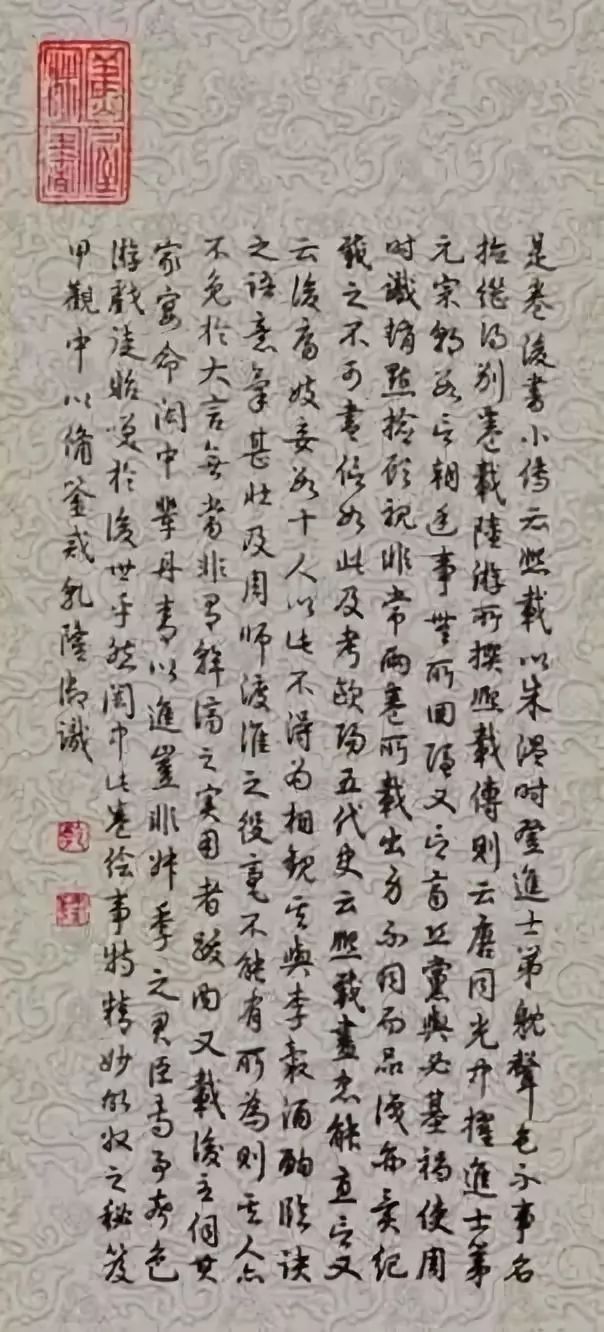 是卷後書小傳云熙載以朱溫時登進士第躭聲色不事名
撿繼得別卷載陸游所撰熙載傳則云唐同光中擢進士第
元宗朝數言朝廷事無所回隱又言齊丘黨與必基禍使周
時識趙點檢顧視非常兩卷所載出處不同而品識亦異紀
載之不可盡信如此及考歐陽五代史云熙載盡忠能直言又
云後房妓妾數十人以此不得為相觀其與李穀酒酣臨訣
之語意氣甚壯及周師渡淮之役竟不能有所為則其人亦
不免於大言無當非有幹濟之實用者跋內又載後主伺其
家宴命閎中輩丹青以進豈非叔季之君臣耑事聲色
游戲徒貽笑於後世乎然閎中此卷繪事特精妙故收之秘笈
甲觀中以備鑒戒乾隆御識
乾
隆